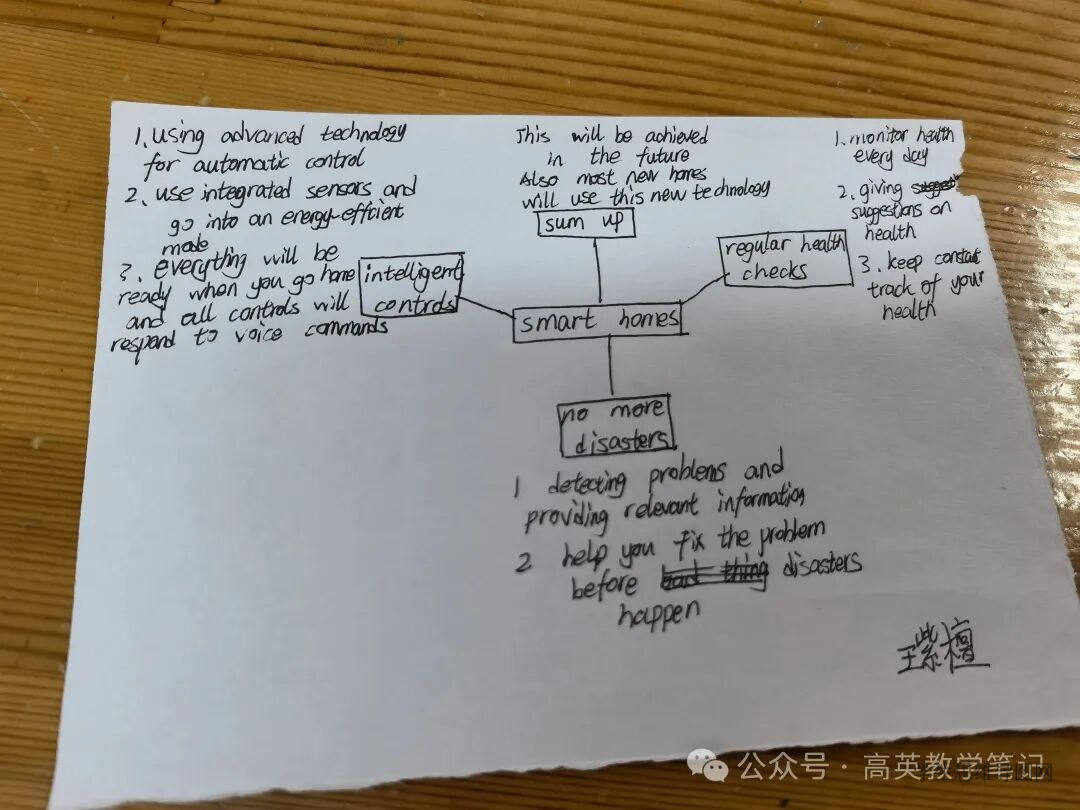 1. using advanced technology
for automatic control
2. use integrated sensors and
go into an energy-efficient
mode
3. everything will be
ready when you go home
and all controls will
respond to voice commands
intelligent
controls
This will be achieved
in the future
Also most new homes
will use this new technology
sum up
smart homes
regular health
checks
1. monitor health
every day
2. giving
suggestions on
health
3. keep constant
track of your
health
no more
disasters
1 detecting problems and
providing relevant information
2 help you fix the problem
before bad thing disasters
happen
王紫檀
公众号·高英教学笔记